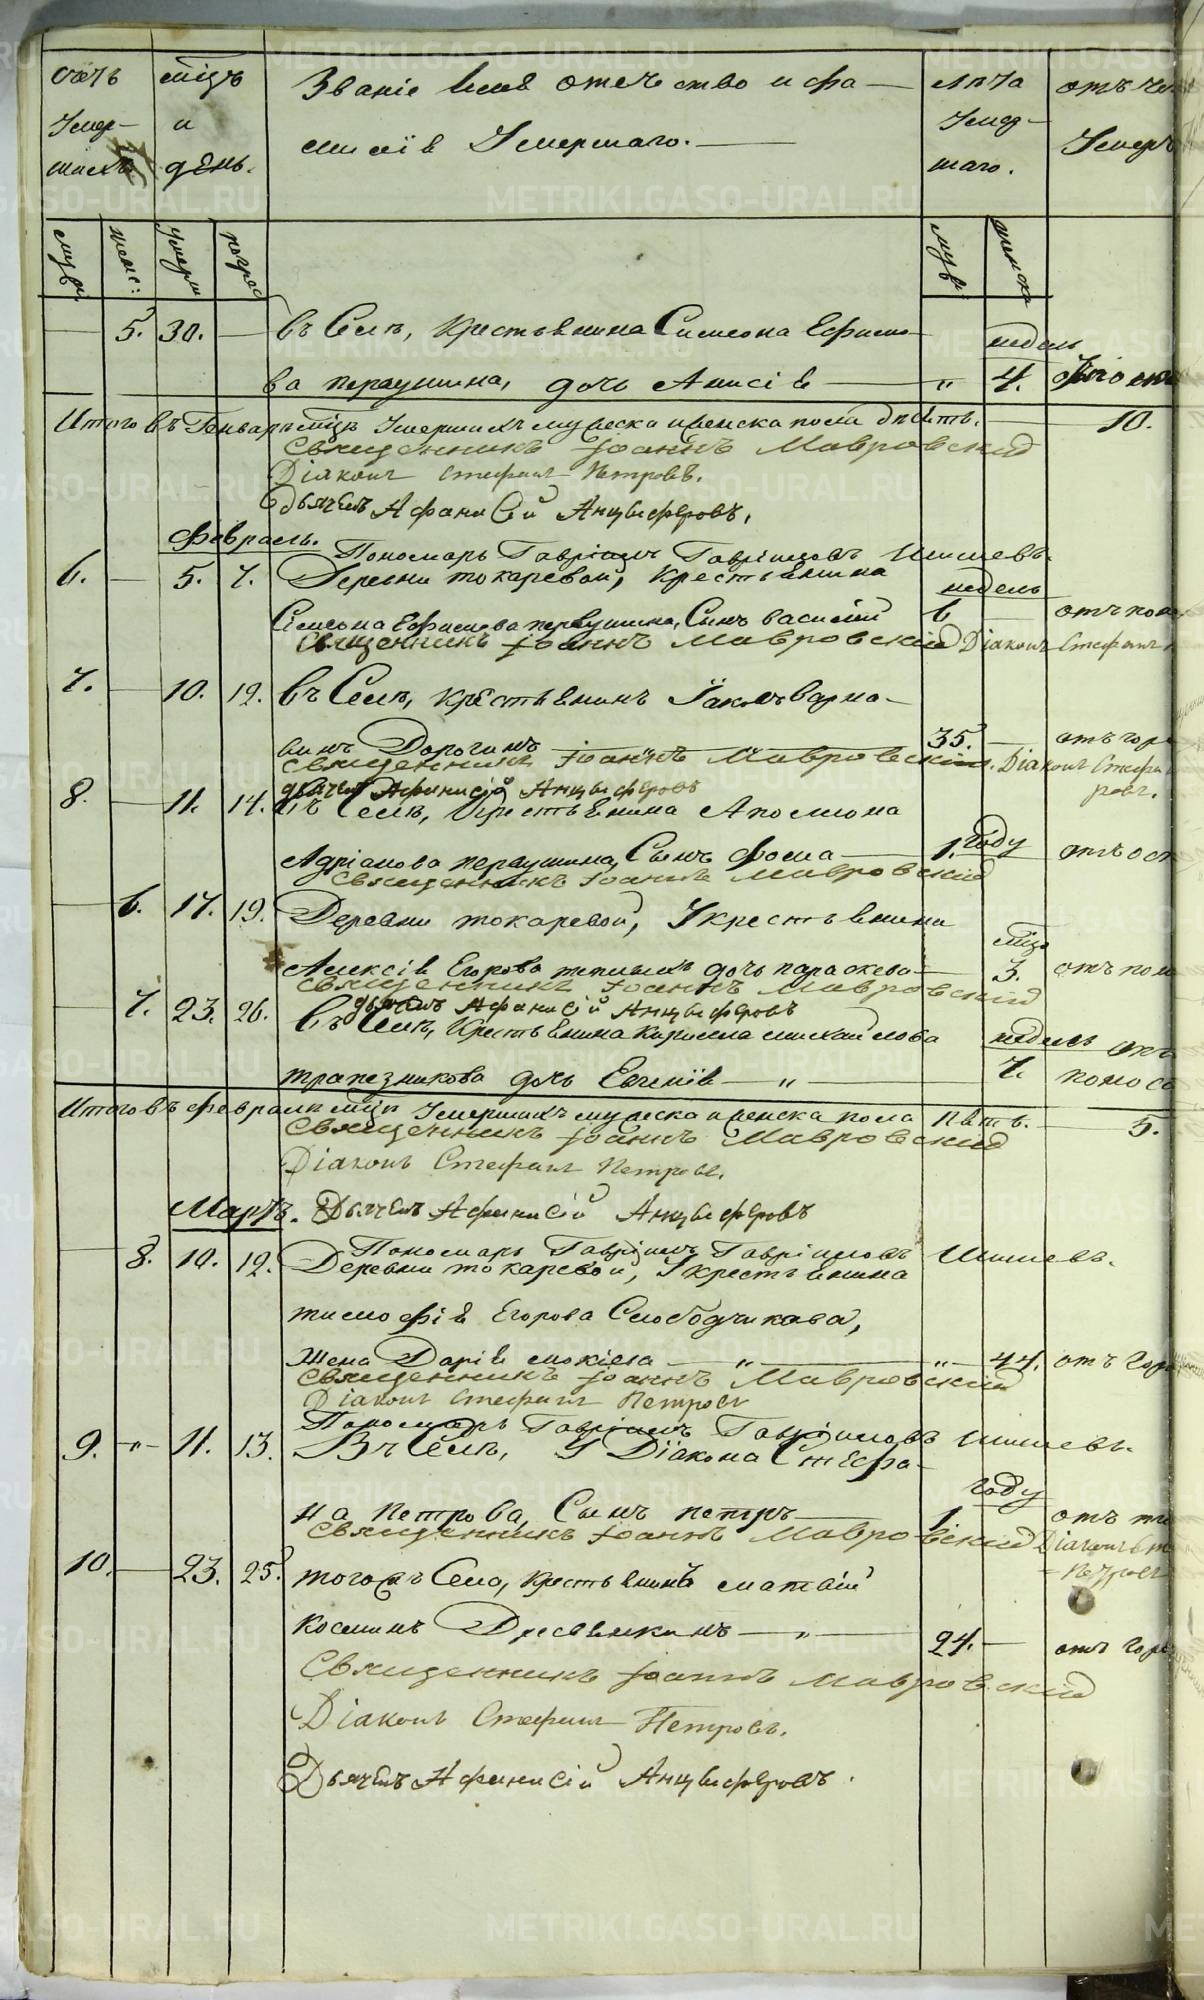 Счетъ мѣсцъ Званіе Имя отечество и фа- лѣта отъ чего
Умер- и милія Умершаго. Умер- Умеръ
шихъ день. шаго.
мужс: женс: Умерш погреб мужс: женска
5. 30. въ Селѣ, Крестьянина Симеона Ефимо- недель
ва первушина, дочь Анисія " 4.
Итого въ Генварѣ мсцѣ Умершихъ мужеска и женска пола десять. 10.
Священникъ Іоаннъ Мавровскій
Діаконъ Стефанъ Петровъ.
Дьячекъ Афанасій Анцыферовъ.
Февраль. Пономарь Гавріилъ Гавріиловъ Шишевъ.
6. 5. 7. Деревни токаревой, Крестьянина недель
Симеона Ефимова первушина, Сынъ василій 6
Священникъ Іоаннъ Мавровскій Діаконъ Стефанъ
7. 10. 12. въ Селѣ, крестьянинъ
винъ Дорогинъ 35.
Священникъ Іоаннъ Мавровскій. Діаконъ Стефанъ
дьячекъ Афанасій Анцыферовъ
8. 11. 14. въ Селѣ, Крестьянина Аполлона
Адріанова первушина, Сынъ фома 1. году
Священникъ Іоаннъ Мавровскій
6. 17. 19. Деревни токаревой, У крестьянина мсцъ
Алексія Егорова дочь параскева 3.
Священникъ Іоаннъ Мавровскій
дьячекъ Афанасій Анцыферовъ
7. 23. 26. въ Селѣ, Крестьянина Кирилла михайлова недель отъ
трапезникова дочь Евгенія " 7. поноса
Итого въ февралѣ мсцѣ Умершихъ мужеска и женска пола пять. 5.
Священникъ Іоаннъ Мавровскій
Діаконъ Стефанъ Петровъ.
Мартъ. Дьячекъ Афанасій Анцыферовъ
Пономарь Гавріилъ Гавріиловъ Шишевъ.
8. 10. 12. Деревни токаревой, У крестьянина
тимофія Егорова Слободчикова,
жена Дарія мокіева " " 44. отъ горя
Священникъ Іоаннъ Мавровскій
Діаконъ Стефанъ Петровъ
Пономарь Гавріилъ Гавріиловъ Шишевъ.
9. " 11. 13. Въ Селѣ, У Діакона Стефа- году
на Петрова, Сынъ петръ 1.
Священникъ Іоаннъ Мавровскій Діаконъ
Петровъ
10. 23. 25. тогожъ Села, крестьянинъ матѳій
косминъ Дресвянкинъ " 24. отъ горя
Священникъ Іоаннъ Мавровскій
Діаконъ Стефанъ Петровъ.
Дьячекъ Афанасій Анцыферовъ.
METRIKI.GASO-URAL.RU